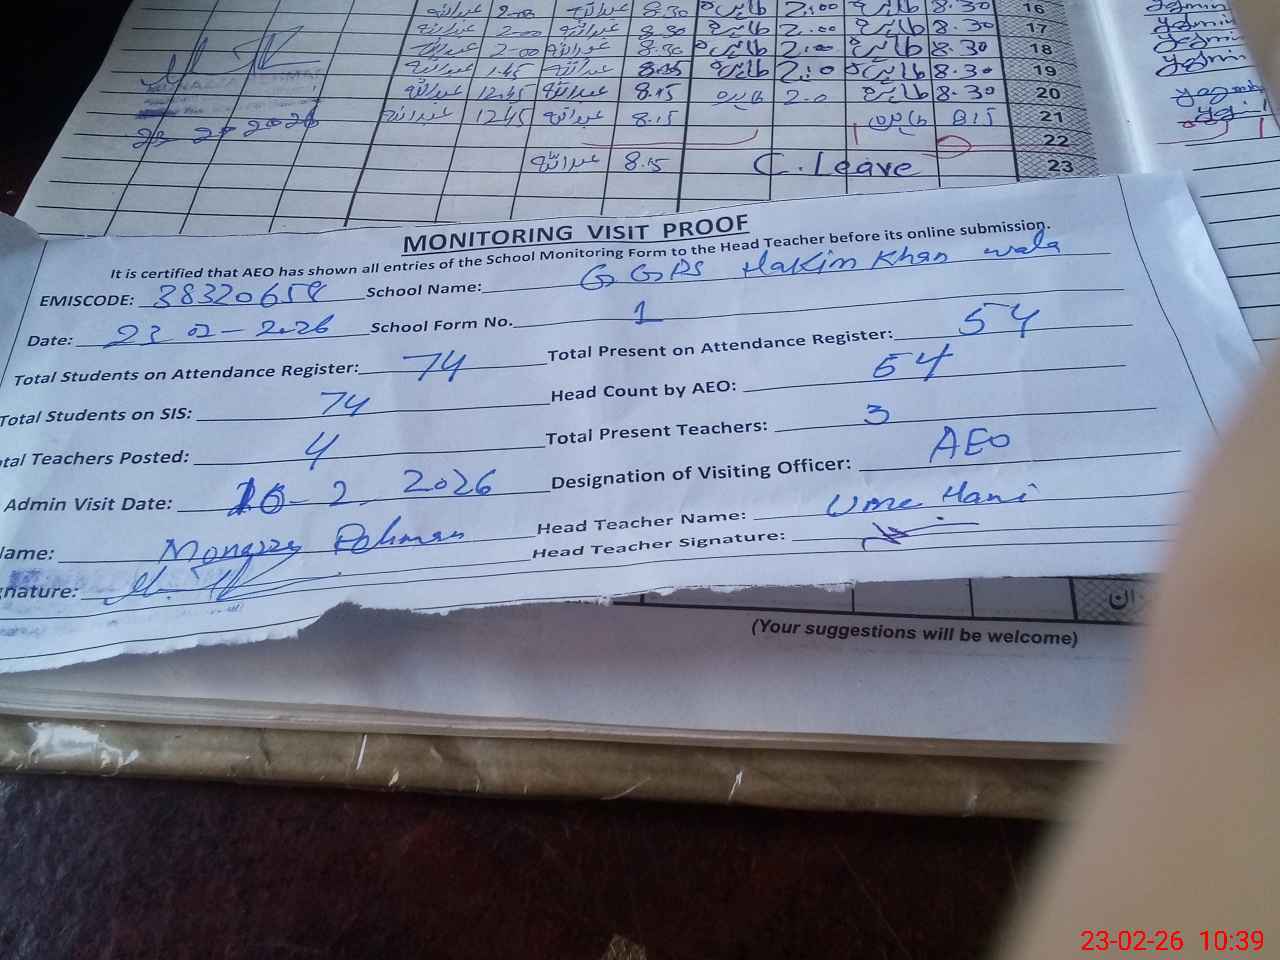 عبداللہ 2-00 عبداللہ 8.30 طاہرہ 2:00 طاہرہ 8.30 16
عبداللہ 2-00 عبداللہ 8.30 طاہرہ 2:00 طاہرہ 8.30 17
عبداللہ 2-00 عبداللہ 8.30 طاہرہ 2:00 طاہرہ 8.30 18
عبداللہ 1.45 عبداللہ طاہرہ 2:0 طاہرہ 8.30 19
عبداللہ 12.45 عبداللہ 8.15 طاہرہ 2.0 طاہرہ 8.30 20
عبداللہ 1245 عبداللہ 8.15 طاہرہ 815 21
22
عبداللہ 8.15 C. Leave 23
23-2-2026
MONITORING VISIT PROOF
It is certified that AEO has shown all entries of the School Monitoring Form to the Head Teacher before its online submission.
EMISCODE: 38320658 School Name: GGPS Hakim Khan wala
Date: 23-02-2026 School Form No. 1
Total Students on Attendance Register: 74 Total Present on Attendance Register: 54
Total Students on SIS: 74 Head Count by AEO: 54
tal Teachers Posted: 4 Total Present Teachers: 3
Admin Visit Date: 16-2-2026 Designation of Visiting Officer: AEO
lame: Rehman Head Teacher Name: Ume Hani
nature: Head Teacher Signature:
(Your suggestions will be welcome)
23-02-26 10:39